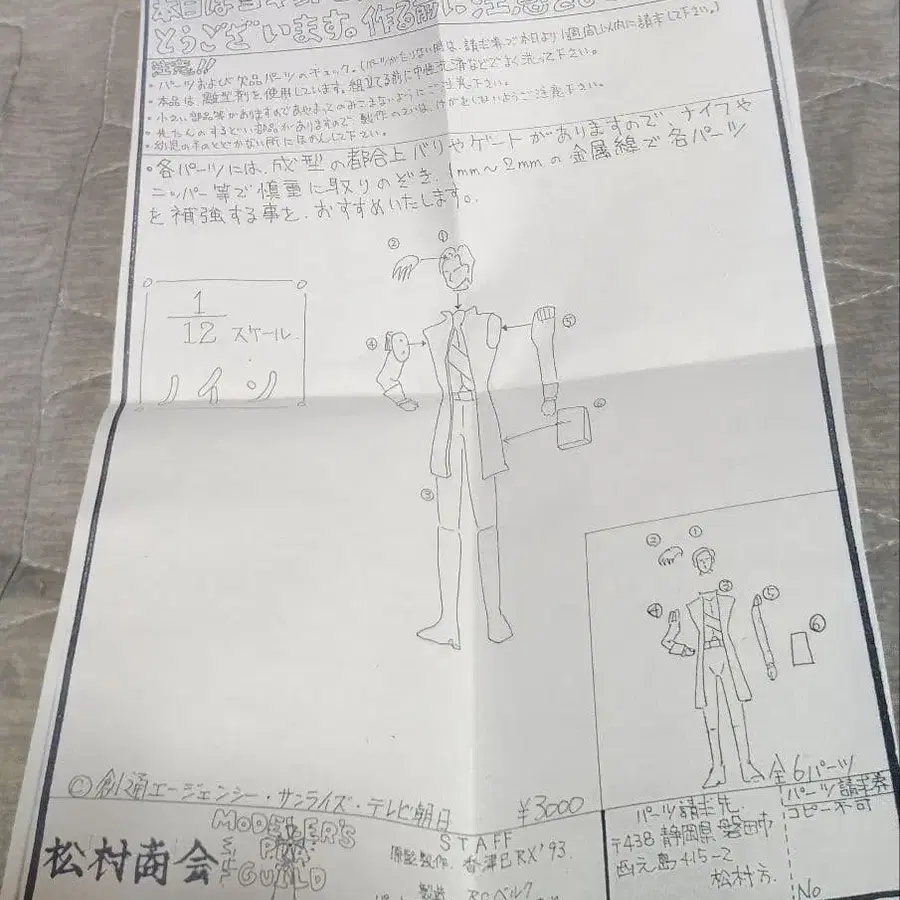 本日は
とうございます。作る前に注意をし
注意!!
・パーツおよび欠品パーツのチェック。(パーツがたりない時は、請求券で本日より1週間以内に請求して下さい。)
・本品は、離型剤を使用しています。組立てる前に中性洗剤などでよく洗って下さい。
・小さい部品等がありますのであやまってのみこまないようにご注意下さい。
・先たんのするどい部品がありますので、製作のさいは、けがをしないようご注意下さい。
・幼児の手のとどかない所にほかんして下さい。
・各パーツには、成型の都合上バリやゲートがありますので、ナイフや
ニッパー等で慎重に取りのぞき、1mm〜2mmの金属線で各パーツ
を補強する事を、おすすめいたします。
1
12 スケール
ノイン
② ①
④ ⑤
⑥
③
② ①
③ ⑤
④
⑥
全6パーツ
©創通エージェンシー・サンライズ・テレビ朝日
¥3000
松村商会
MODELER'S
GUILD
STAFF
原型製作 香津巳RX'93
製造
パーツ請求先
〒438 静岡県磐田市
西之島415-2
松村方
パーツ請求券
コピー不可
No